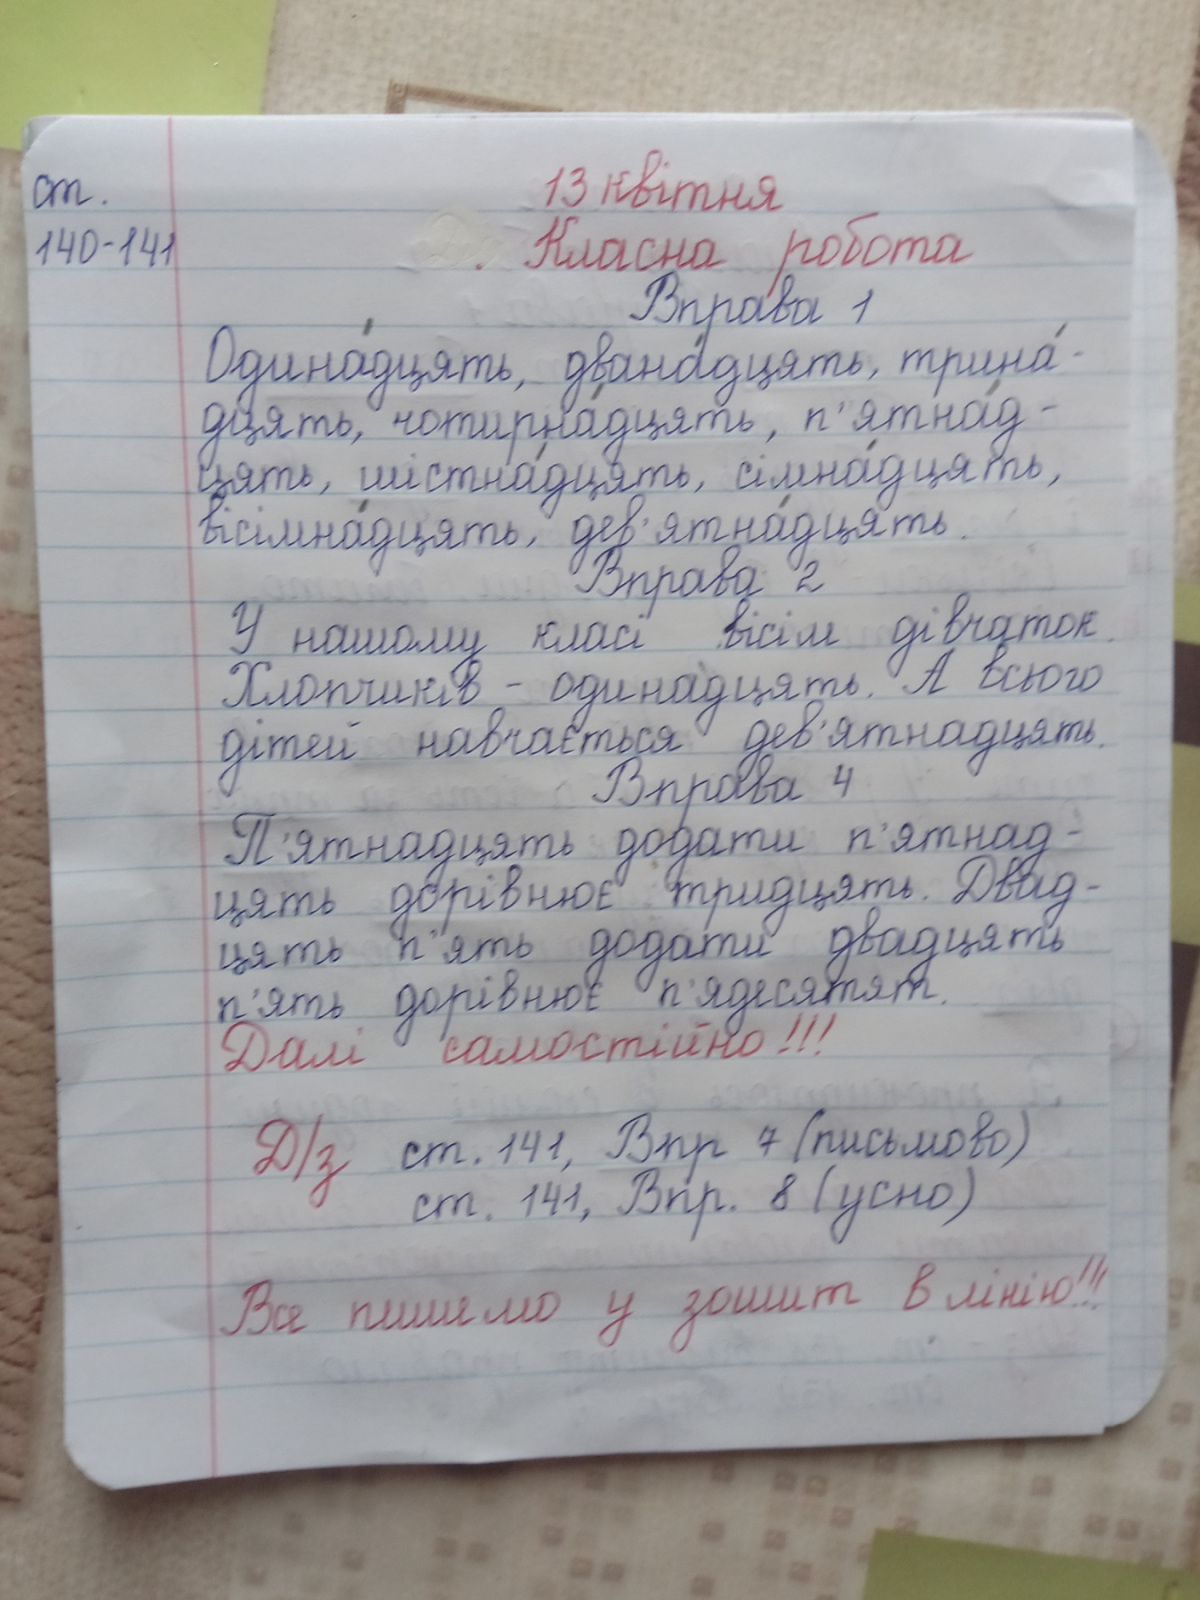 ст.
140-141
13 квітня
Класна робота
Вправа 1
Одина́дцять, двана́дцять, трина́-
дцять, чотирна́дцять, п'ятна́д-
цять, шістна́дцять, сімна́дцять,
вісімна́дцять, дев'ятна́дцять.
Вправа 2
У нашому класі вісім дівчаток.
Хлопчиків - одина́дцять. А всього
дітей навчається дев'ятнадцять.
Вправа 4
П'ятнадцять додати п'ятнад-
цять дорівнює тридцять. Двад-
цять п'ять додати двадцять
п'ять дорівнює п'ядесятят.
Далі самостійно!!!
Д/з ст. 141, Впр 7 (письмово)
ст. 141, Впр. 8 (усно)
Все пишемо у зошит в лінію!!!